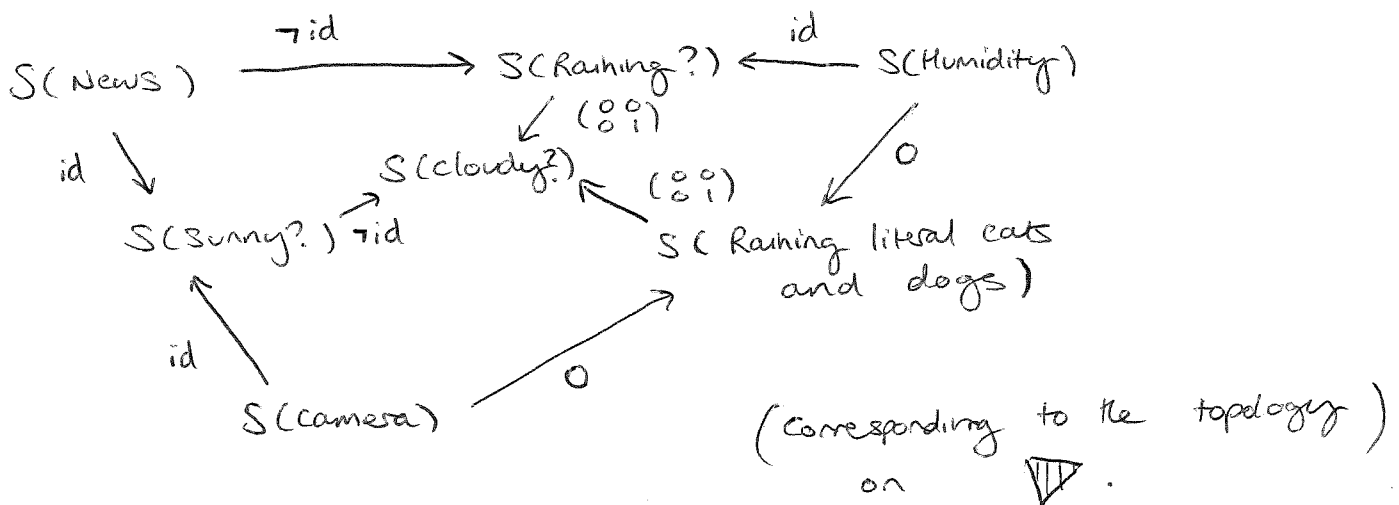 ¬id
id
S(News)
S(Raining?)
S(Humidity)
(0 0
0 1)
id
S(Cloudy?)
(0 0
0 1)
0
S(Sunny?)
¬id
S(Raining literal cats
and dogs)
id
0
S(Camera)
(Corresponding to the topology
on .)